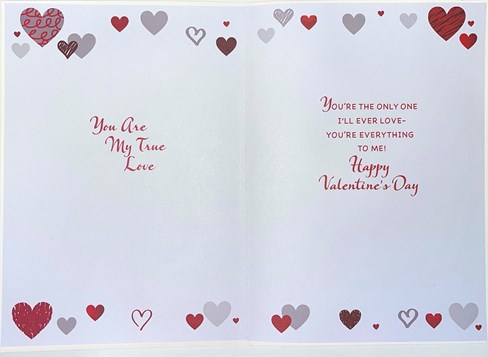 You Are
My True
Love
YOU'RE THE ONLY ONE
I'LL EVER LOVE–
YOU'RE EVERYTHING
TO ME!
Happy
Valentine's Day